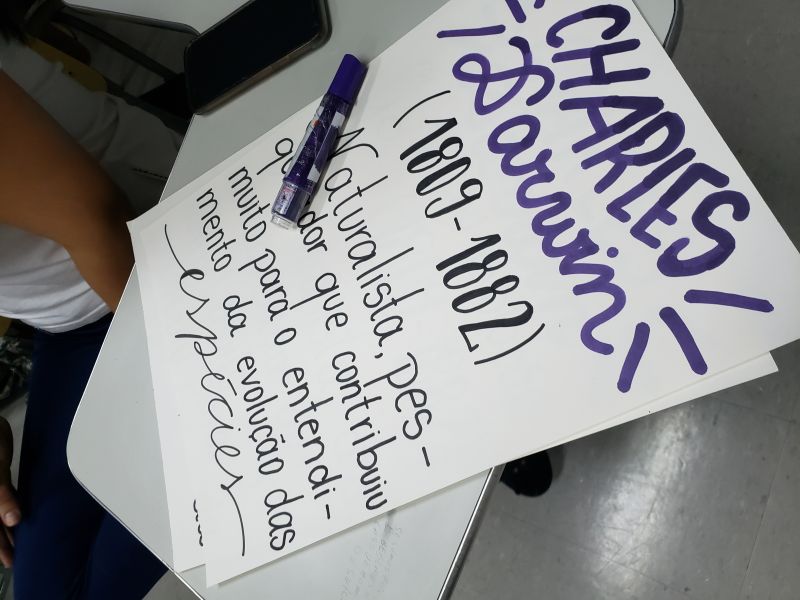 CHARLES
Darwin
(1809-1882)
Naturalista, pes-
dor que contribuiu
muito para o entendi-
mento da evolução das
espécies